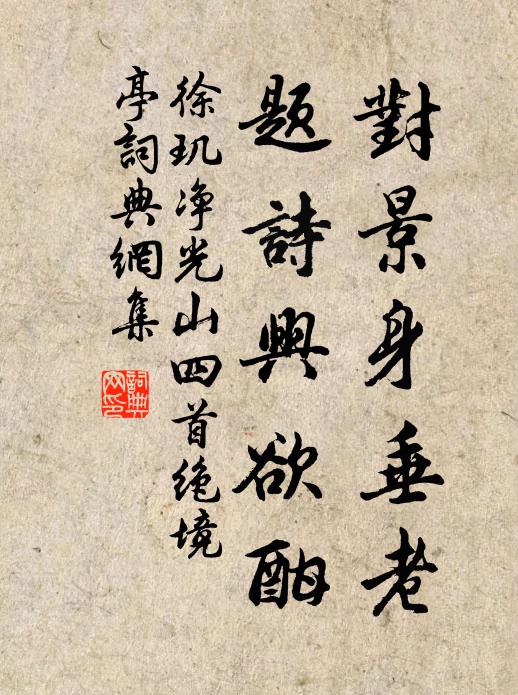 對景身垂老
題詩興欲酣
徐玑净光山四首绝境
亭詞典網集
詞典网印